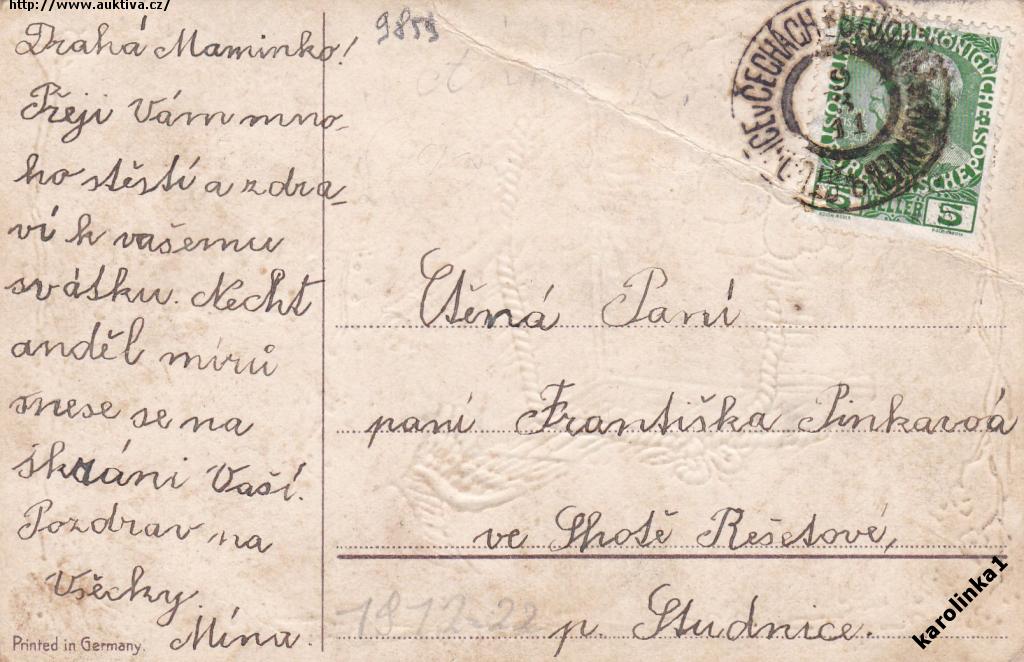 http://www.auktiva.cz/
9859
Drahá Maminko!
Přeji Vám mno-
ho štěstí a zdra-
ví k vašemu
svátku. Nechť
anděl mírů
snese se na
skráni Vaší.
Pozdrav na
Všecky.
Mína.
Printed in Germany.
V ČECHÁCH
9
3
11
5 HELLER 5
Ctěná Paní
paní Františka Pinkavoá
ve Lhotě Řešetové,
p. Studnice.
1912.22
karolinka1